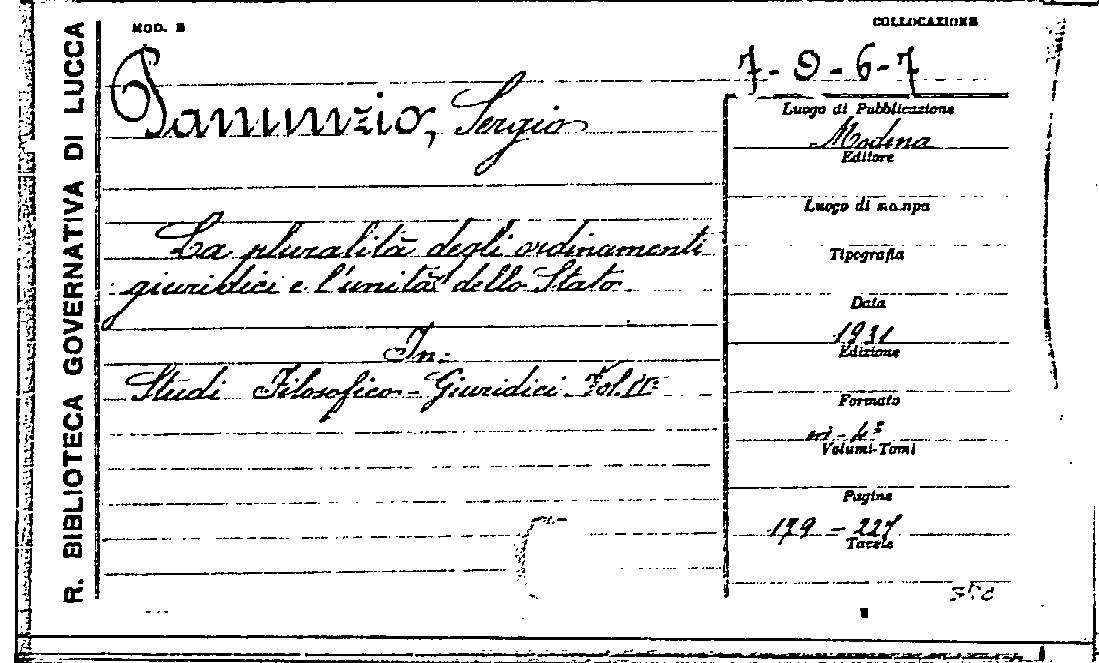 R. BIBLIOTECA GOVERNATIVA DI LUCCA
MOD. B
COLLOCAZIONE
7-9-6-7
Panunzio, Sergio
La pluralità degli ordinamenti
giuridici e l'unità dello Stato.
In:
Studi Filosofico-Giuridici. Vol. II°
Luogo di Pubblicazione
Modena
Editore
Luogo di stampa
Tipografia
Data
1931
Edizione
Formato
in-4°
Volumi-Tomi
Pagine
179-227
Tavole